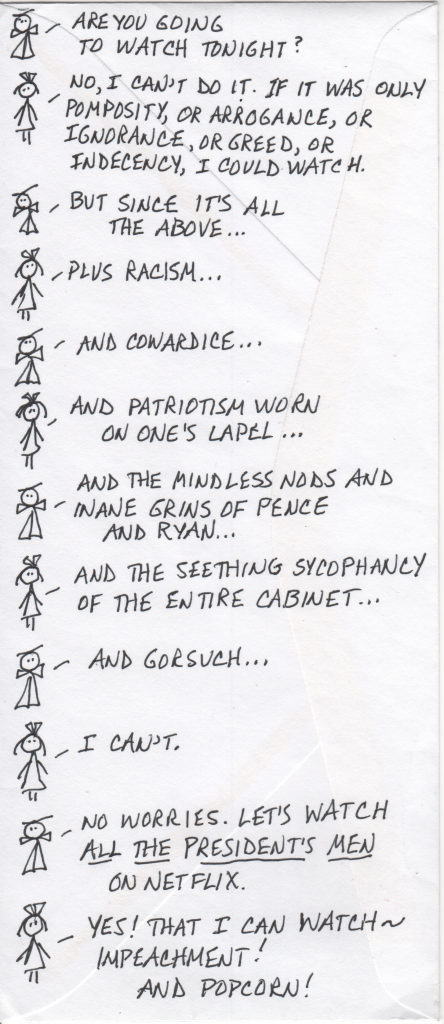 ARE YOU GOING
TO WATCH TONIGHT?
NO, I CAN'T DO IT. IF IT WAS ONLY
POMPOSITY, OR ARROGANCE, OR
IGNORANCE, OR GREED, OR
INDECENCY, I COULD WATCH.
BUT SINCE IT'S ALL
THE ABOVE...
PLUS RACISM...
AND COWARDICE...
AND PATRIOTISM WORN
ON ONE'S LAPEL...
AND THE MINDLESS NODS AND
INANE GRINS OF PENCE
AND RYAN...
AND THE SEETHING SYCOPHANCY
OF THE ENTIRE CABINET...
AND GORSUCH...
I CAN'T.
NO WORRIES. LET'S WATCH
ALL THE PRESIDENT'S MEN
ON NETFLIX.
YES! THAT I CAN WATCH~
IMPEACHMENT!
AND POPCORN!